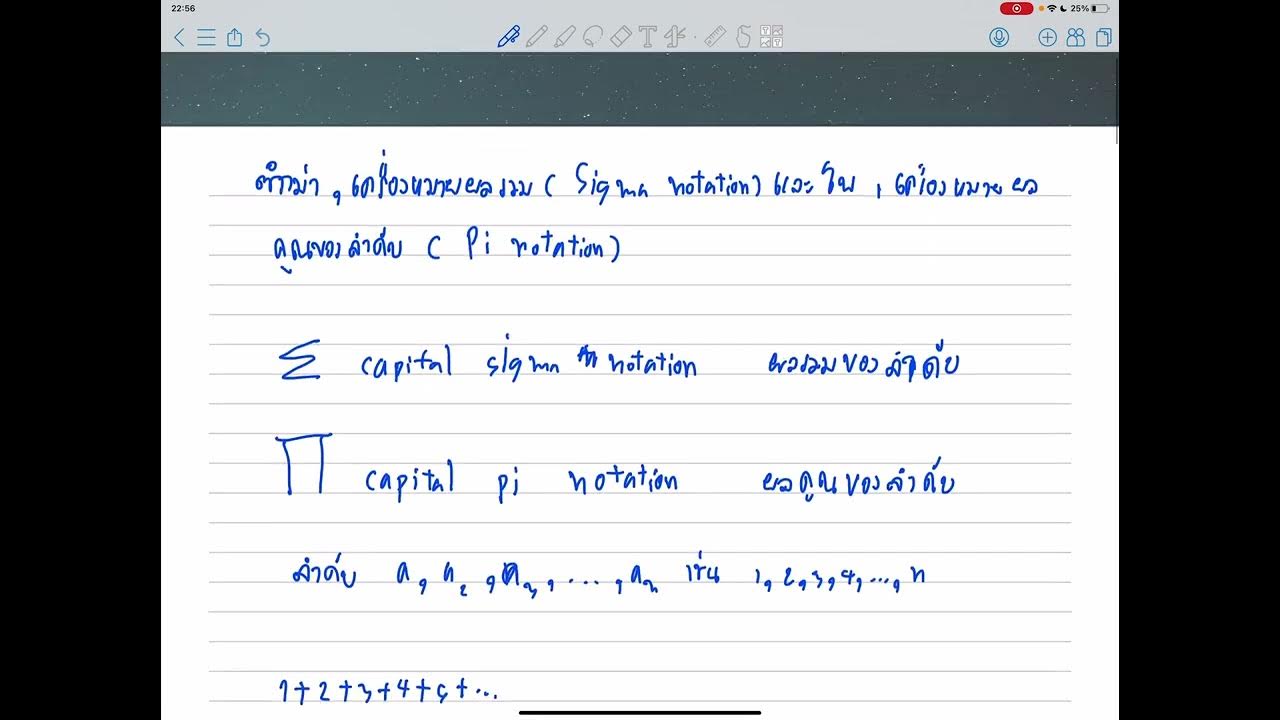 22:56
25%
ซิกม่า , เครื่องหมายผลรวม ( Sigma notation ) และ ไพ , เครื่องหมาย ผล
คูณของลำดับ ( Pi notation )
Σ capital sigma notation ผลรวมของลำดับ
∏ capital pi notation ผลคูณของลำดับ
ลำดับ a₁, a₂, a₃, ..., aₙ เช่น 1, 2, 3, 4, ..., n
1+2+3+4+5+...